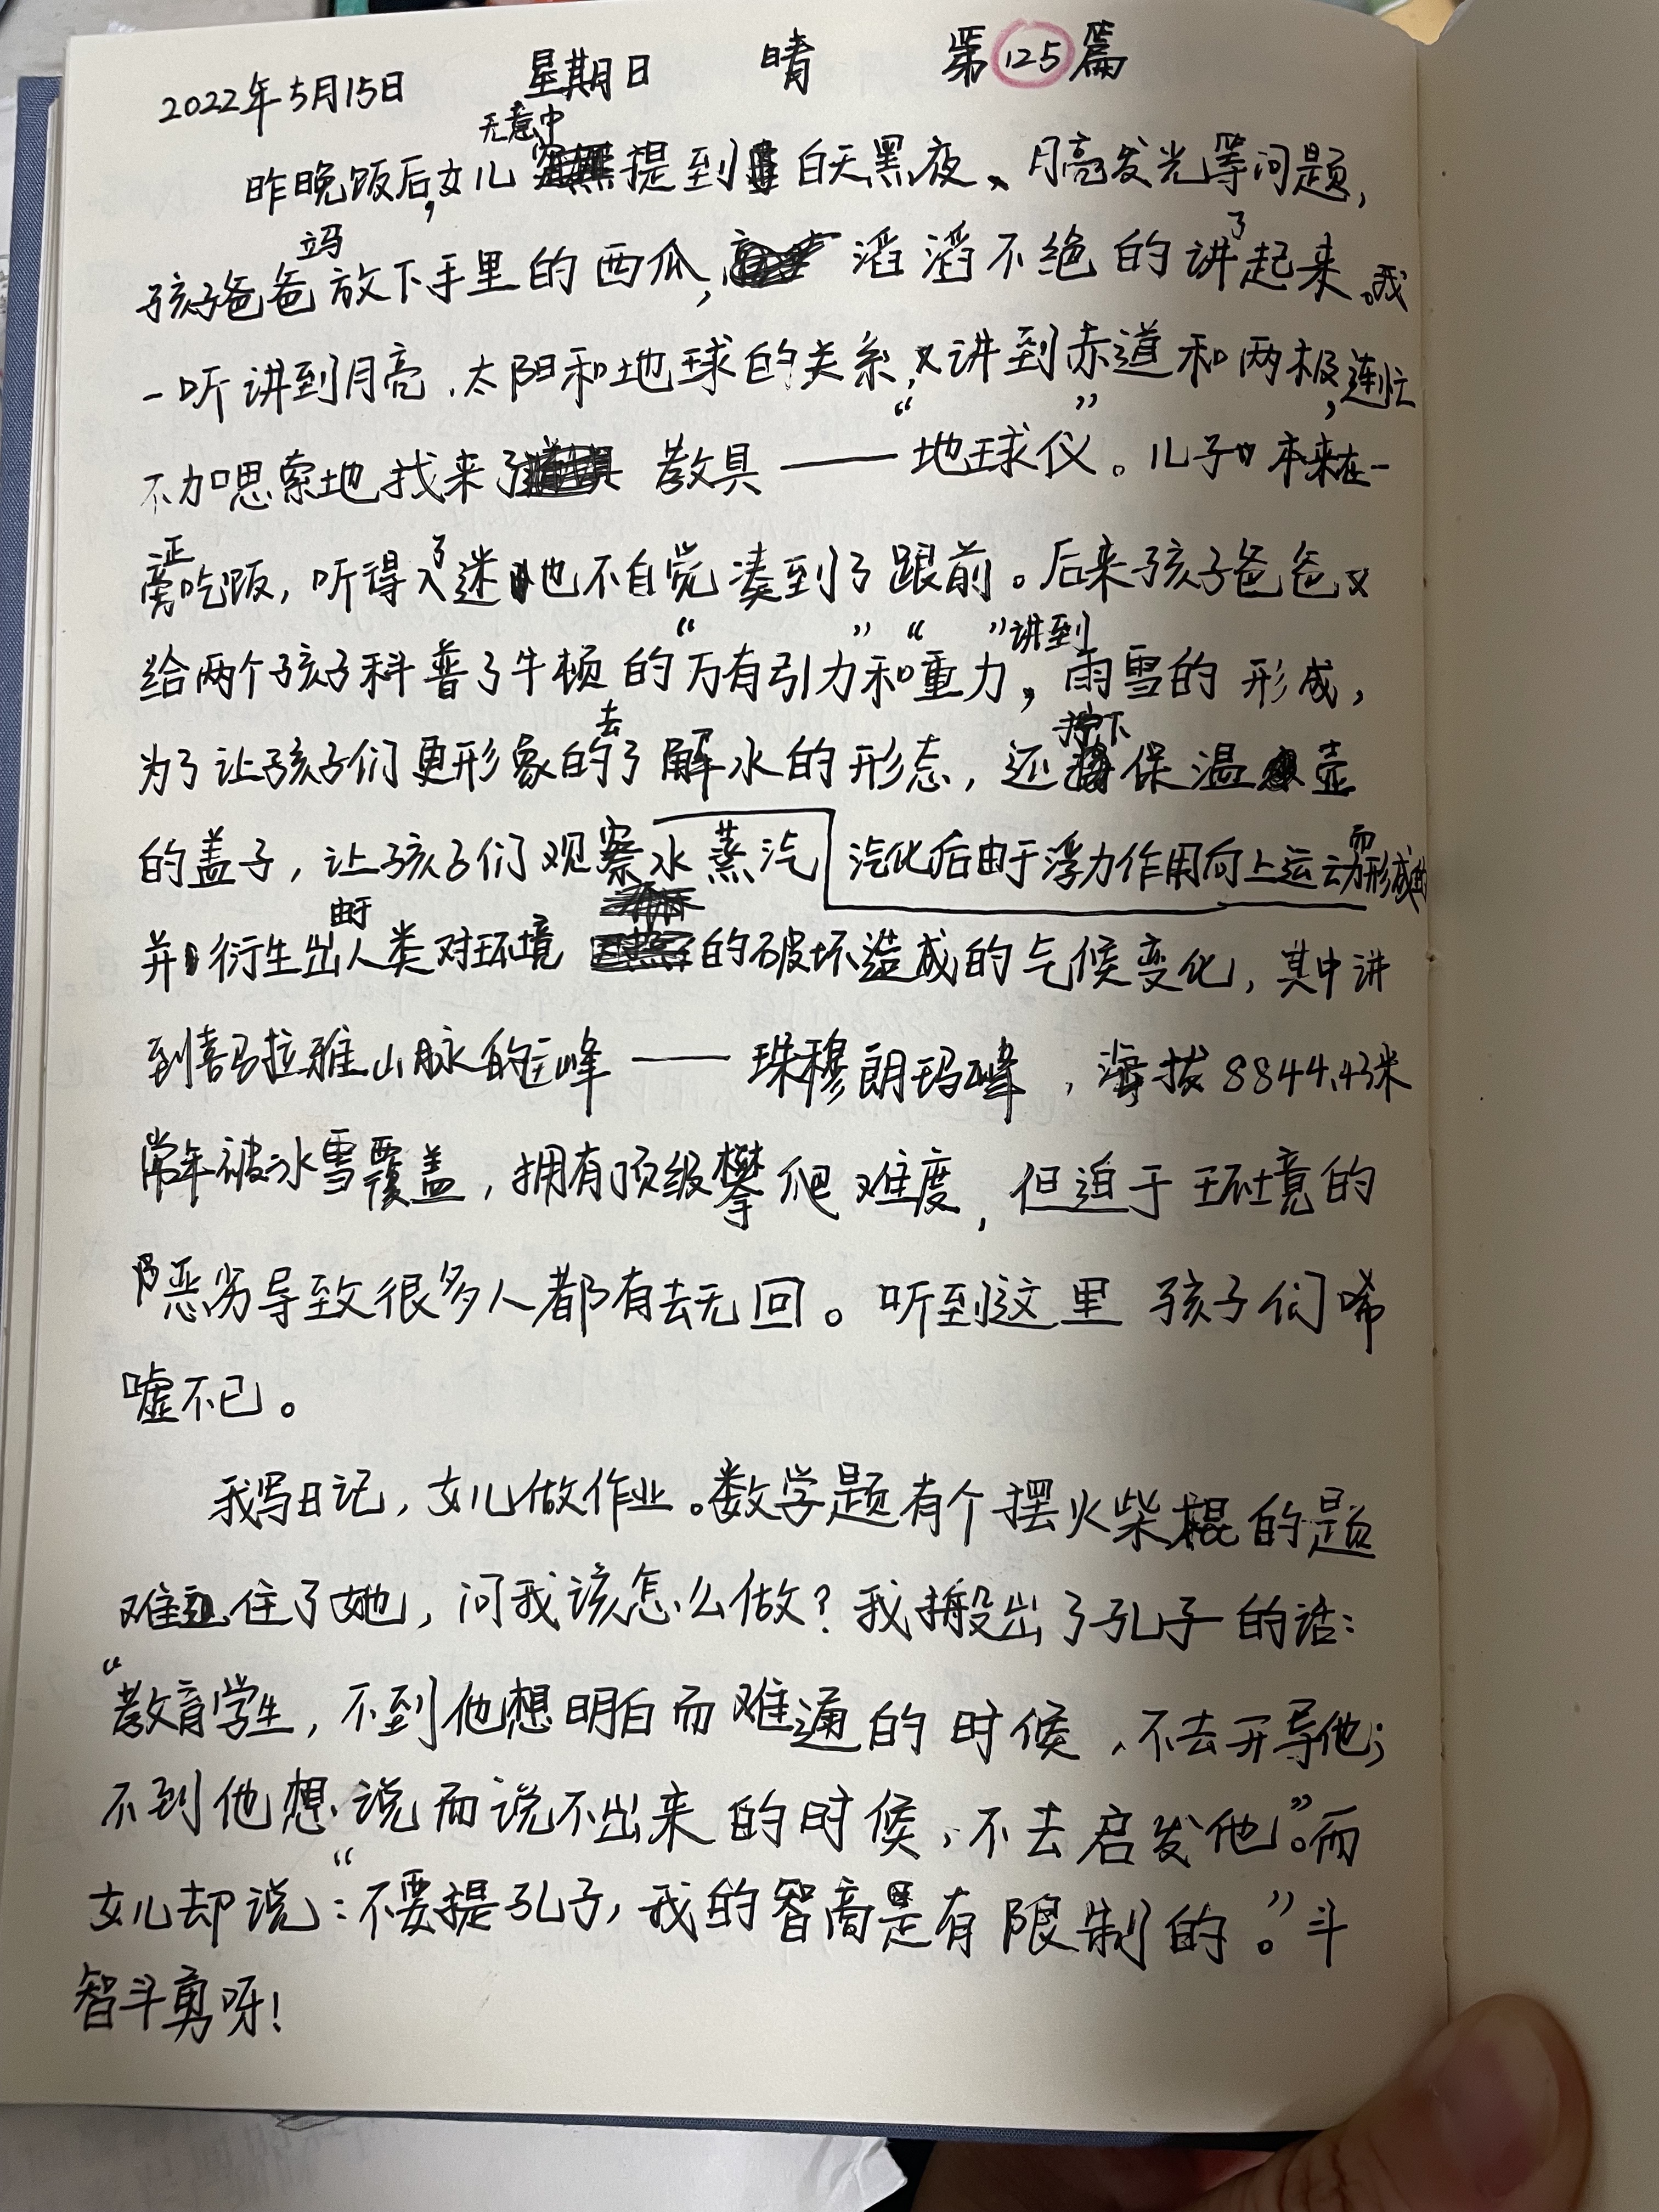 2022年5月15日 星期日 晴 第125篇
昨晚饭后,女儿无意中提到白天黑夜、月亮发光等问题,
孩子爸爸立马放下手里的西瓜,滔滔不绝的讲了起来。我
一听讲到月亮、太阳和地球的关系,又讲到赤道和两极,连忙
不加思索地找来了教具——“地球仪”。儿子本来在一
旁正吃饭,听得入了迷也不自觉凑到了跟前。后来孩子爸爸又
给两个孩子科普了牛顿的“万有引力”和“重力”,讲到雨雪的形成,
为了让孩子们更形象的去了解水的形态,还拧下保温壶
的盖子,让孩子们观察水蒸汽汽化后由于浮力作用向上运动而形成的
并衍生出由于人类对环境的破坏造成的气候变化,其中讲
到喜马拉雅山脉的主峰——珠穆朗玛峰,海拔8844.43米
常年被冰雪覆盖,拥有顶级攀爬难度,但迫于环境的
恶劣导致很多人都有去无回。听到这里孩子们唏
嘘不已。
我写日记,女儿做作业。数学题有个摆火柴棍的题
难住了她,问我该怎么做?我搬出了孔子的话:
“教育学生,不到他想明白而难通的时候,不去开导他;
不到他想说而说不出来的时候,不去启发他”。而
女儿却说:“不要提孔子,我的智商是有限制的。”斗
智斗勇呀!